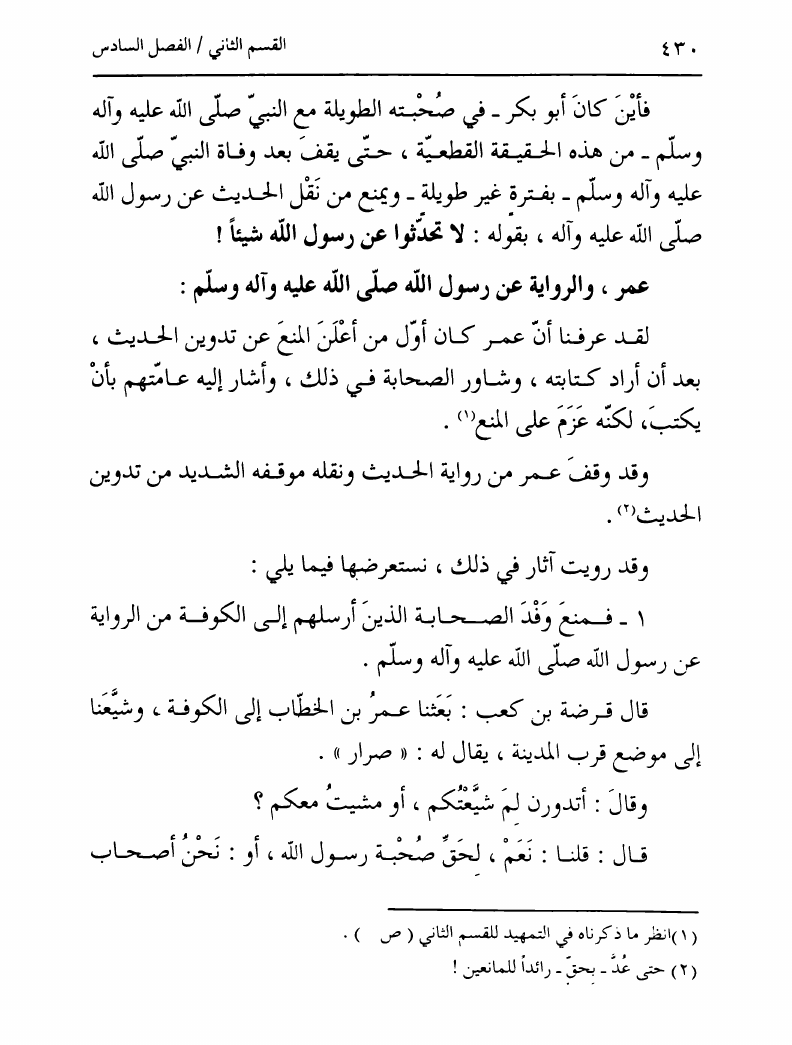 ٤٣٠
القسم الثاني / الفصل السادس
فأيْنَ كانَ أبو بكر ـ في صُحْبته الطويلة مع النبيّ صلّى الله عليه وآله
وسلّم ـ من هذه الحقيقة القطعيّة ، حتّى يقفَ بعد وفاة النبيّ صلّى الله
عليه وآله وسلّم ـ بفترةٍ غير طويلةٍ ـ ويمنع من نَقْل الحديث عن رسول الله
صلّى الله عليه وآله ، بقوله : لا تحدّثوا عن رسول الله شيئاً !
عمر ، والرواية عن رسول الله صلّى الله عليه وآله وسلّم :
لقد عرفنا أنّ عمر كان أوّل من أعْلَنَ المنعَ عن تدوين الحديث ،
بعد أن أراد كتابته ، وشاور الصحابة في ذلك ، وأشار إليه عامّتهم بأنْ
يكتبَ، لكنّه عَزَمَ على المنع(١) .
وقد وقفَ عمر من رواية الحديث ونقله موقفه الشديد من تدوين
الحديث(٢) .
وقد رويت آثار في ذلك ، نستعرضها فيما يلي :
١ ـ فمنعَ وَفْدَ الصحابة الذينَ أرسلهم إلى الكوفة من الرواية
عن رسول الله صلّى الله عليه وآله وسلّم .
قال قرضة بن كعب : بَعَثنا عمرُ بن الخطّاب إلى الكوفة ، وشيَّعَنا
إلى موضع قرب المدينة ، يقال له : « صرار » .
وقالَ : أتدورن لِمَ شيَّعْتُكم ، أو مشيتُ معكم ؟
قال : قلنا : نَعَمْ ، لِحَقِّ صُحْبة رسول الله ، أو : نَحْنُ أصحاب
(١)انظر ما ذكرناه في التمهيد للقسم الثاني ( ص ) .
(٢) حتى عُدَّ ـ بحقّ ـ رائداً للمانعين !